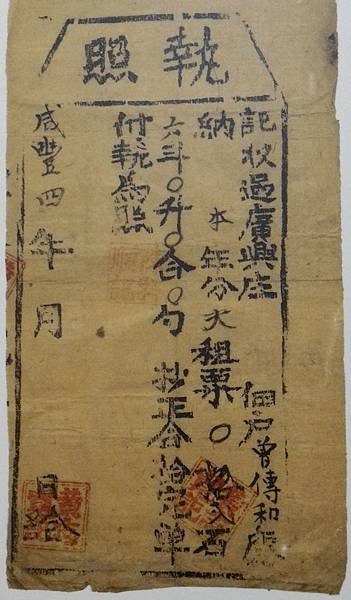 執照
記收過廣興庄 佃戶曾傳和應
納本年分大租粟〇拾石
六斗〇升〇合〇勺 合給完單
付執為照
咸豐四年 月 日給